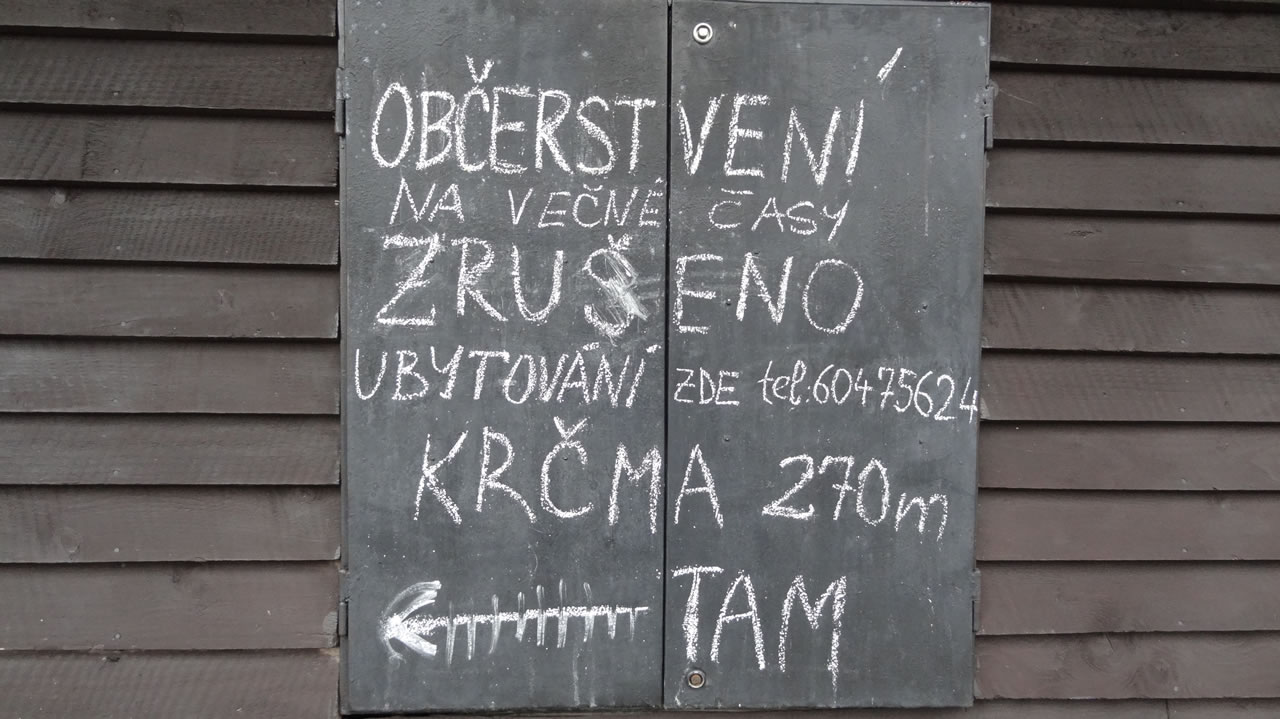 OBČERSTVENÍ
NA VEČNÉ ČASY
ZRUŠENO
UBYTOVÁNÍ ZDE tel:60475624
KRČMA 270m
TAM